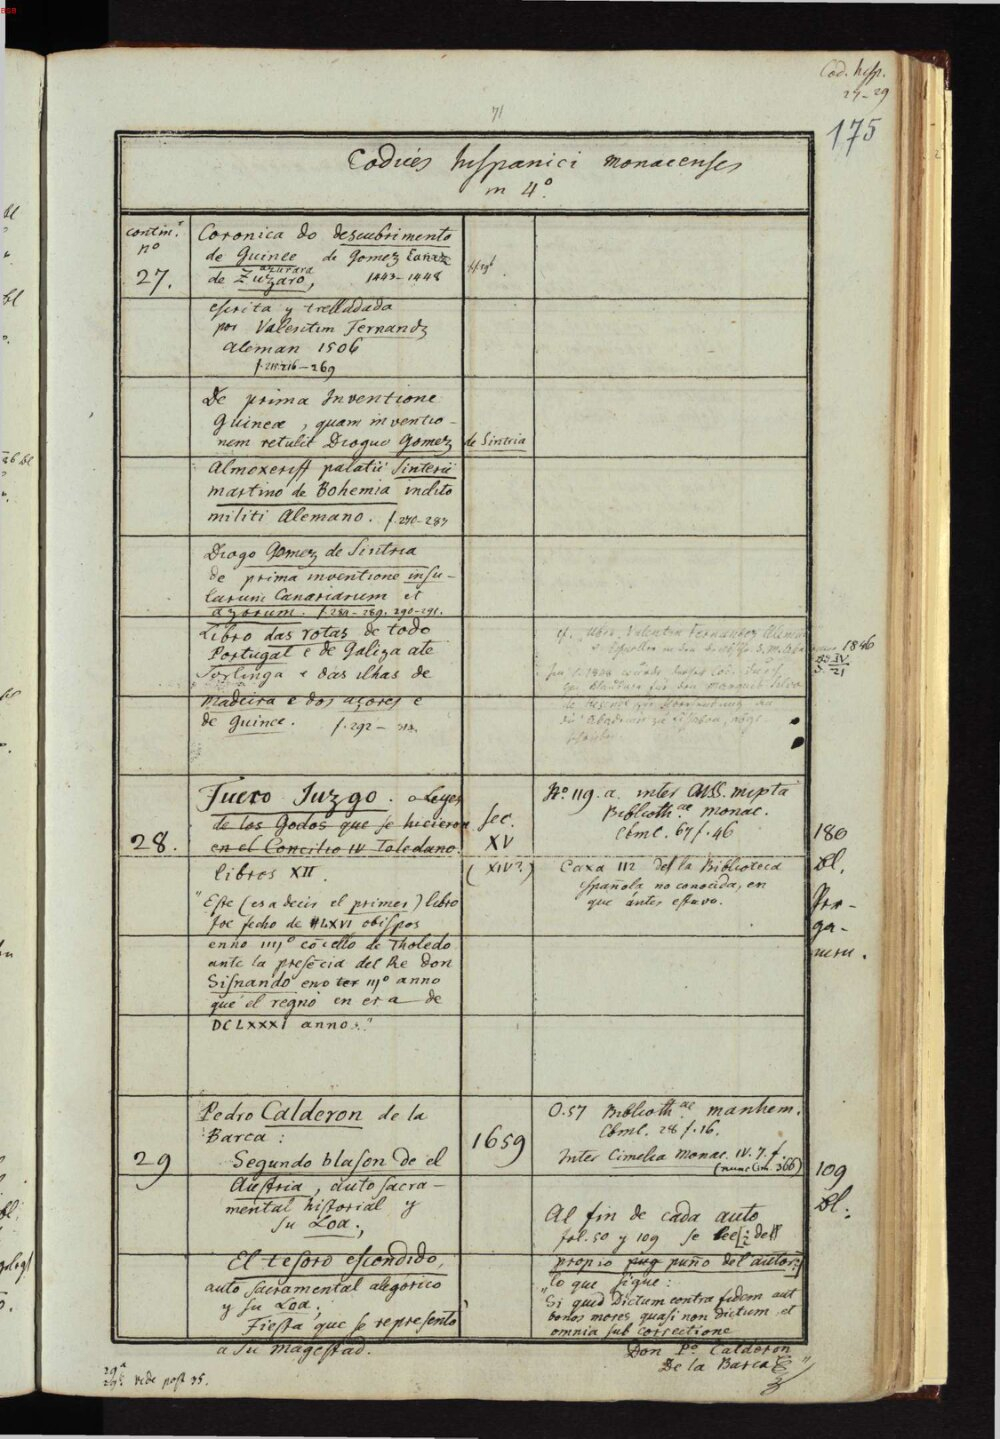 BSB
Cod. hisp.
27-29
175
71
Codices hispanici monacenses
in 4º.
contin.
nº
27.
Coronica do descubrimento
de Guinee de Gomez
azurara
de Zuzaro, 1443-1448
escrita y trelladada
por Valentim Fernandz
Aleman 1506
f. 215 216-269
De prima Inventione
Guineæ, quam inventio-
nem retulit Dioguo Gomez de Sintria
Almoxeriff palatii Sinterii
martino de Bohemia indito
militi Alemano. f. 270-287
Diogo Gomez de Sintria
de prima inventione insu-
larum Canariarum et
azorum. f. 284-289. 290-291.
Libro das rotas de todo
Portugal e de Galiza ate
e das ilhas de
madeira e dos açores e
de Guince. f. 292-
cf. Valentin Fernandez Aleman
1846
IV
21
28.
Fuero Juzgo. o Leyes
de los Godos que se hicieron
en el Concilio IV Toledano.
libros XII.
sec.
XV
(XIV?)
Nº. 119. a. inter Mss. mspta
Biblioth.ae monac.
Cbml. 67 f. 46
Caxa 112 de la Biblioteca
española no conocida, en
que ántes estavo.
180
Bl.
Per-
ga-
men.
"Este (es a decir el primer) libro
foe fecho de LXVI obispos
enno IIIIº cõcello de Tholedo
ante la presẽcia del Re don
Sisnando eno ter IIIº anno
que el regnó en era de
DCLXXXI anno."
29
Pedro Calderon de la
Barca:
Segundo blason de el
Austria, auto sacra-
mental historial y
su Loa.;
El tesoro escondido,
auto sacramental alegorico
y su Loa;
Fiesta que se representó
a su magestad.
1659
O. 57 Biblioth.ae manhem.
Cbml. 28 f. 16.
Inter Cimelia Monac. IV. 7. f.
(nunc Cim. 366)
109
Bl.
Al fin de cada auto
fol. 50 y 109 se lee [: de
propio puño del autor:]
lo que sigue:
"Si quid Dictum contra fidem aut
bonos mores, quasi non dictum et
omnia sub correctione
Don Pº. Calderon
De la Barca"
29a
vide post 35.